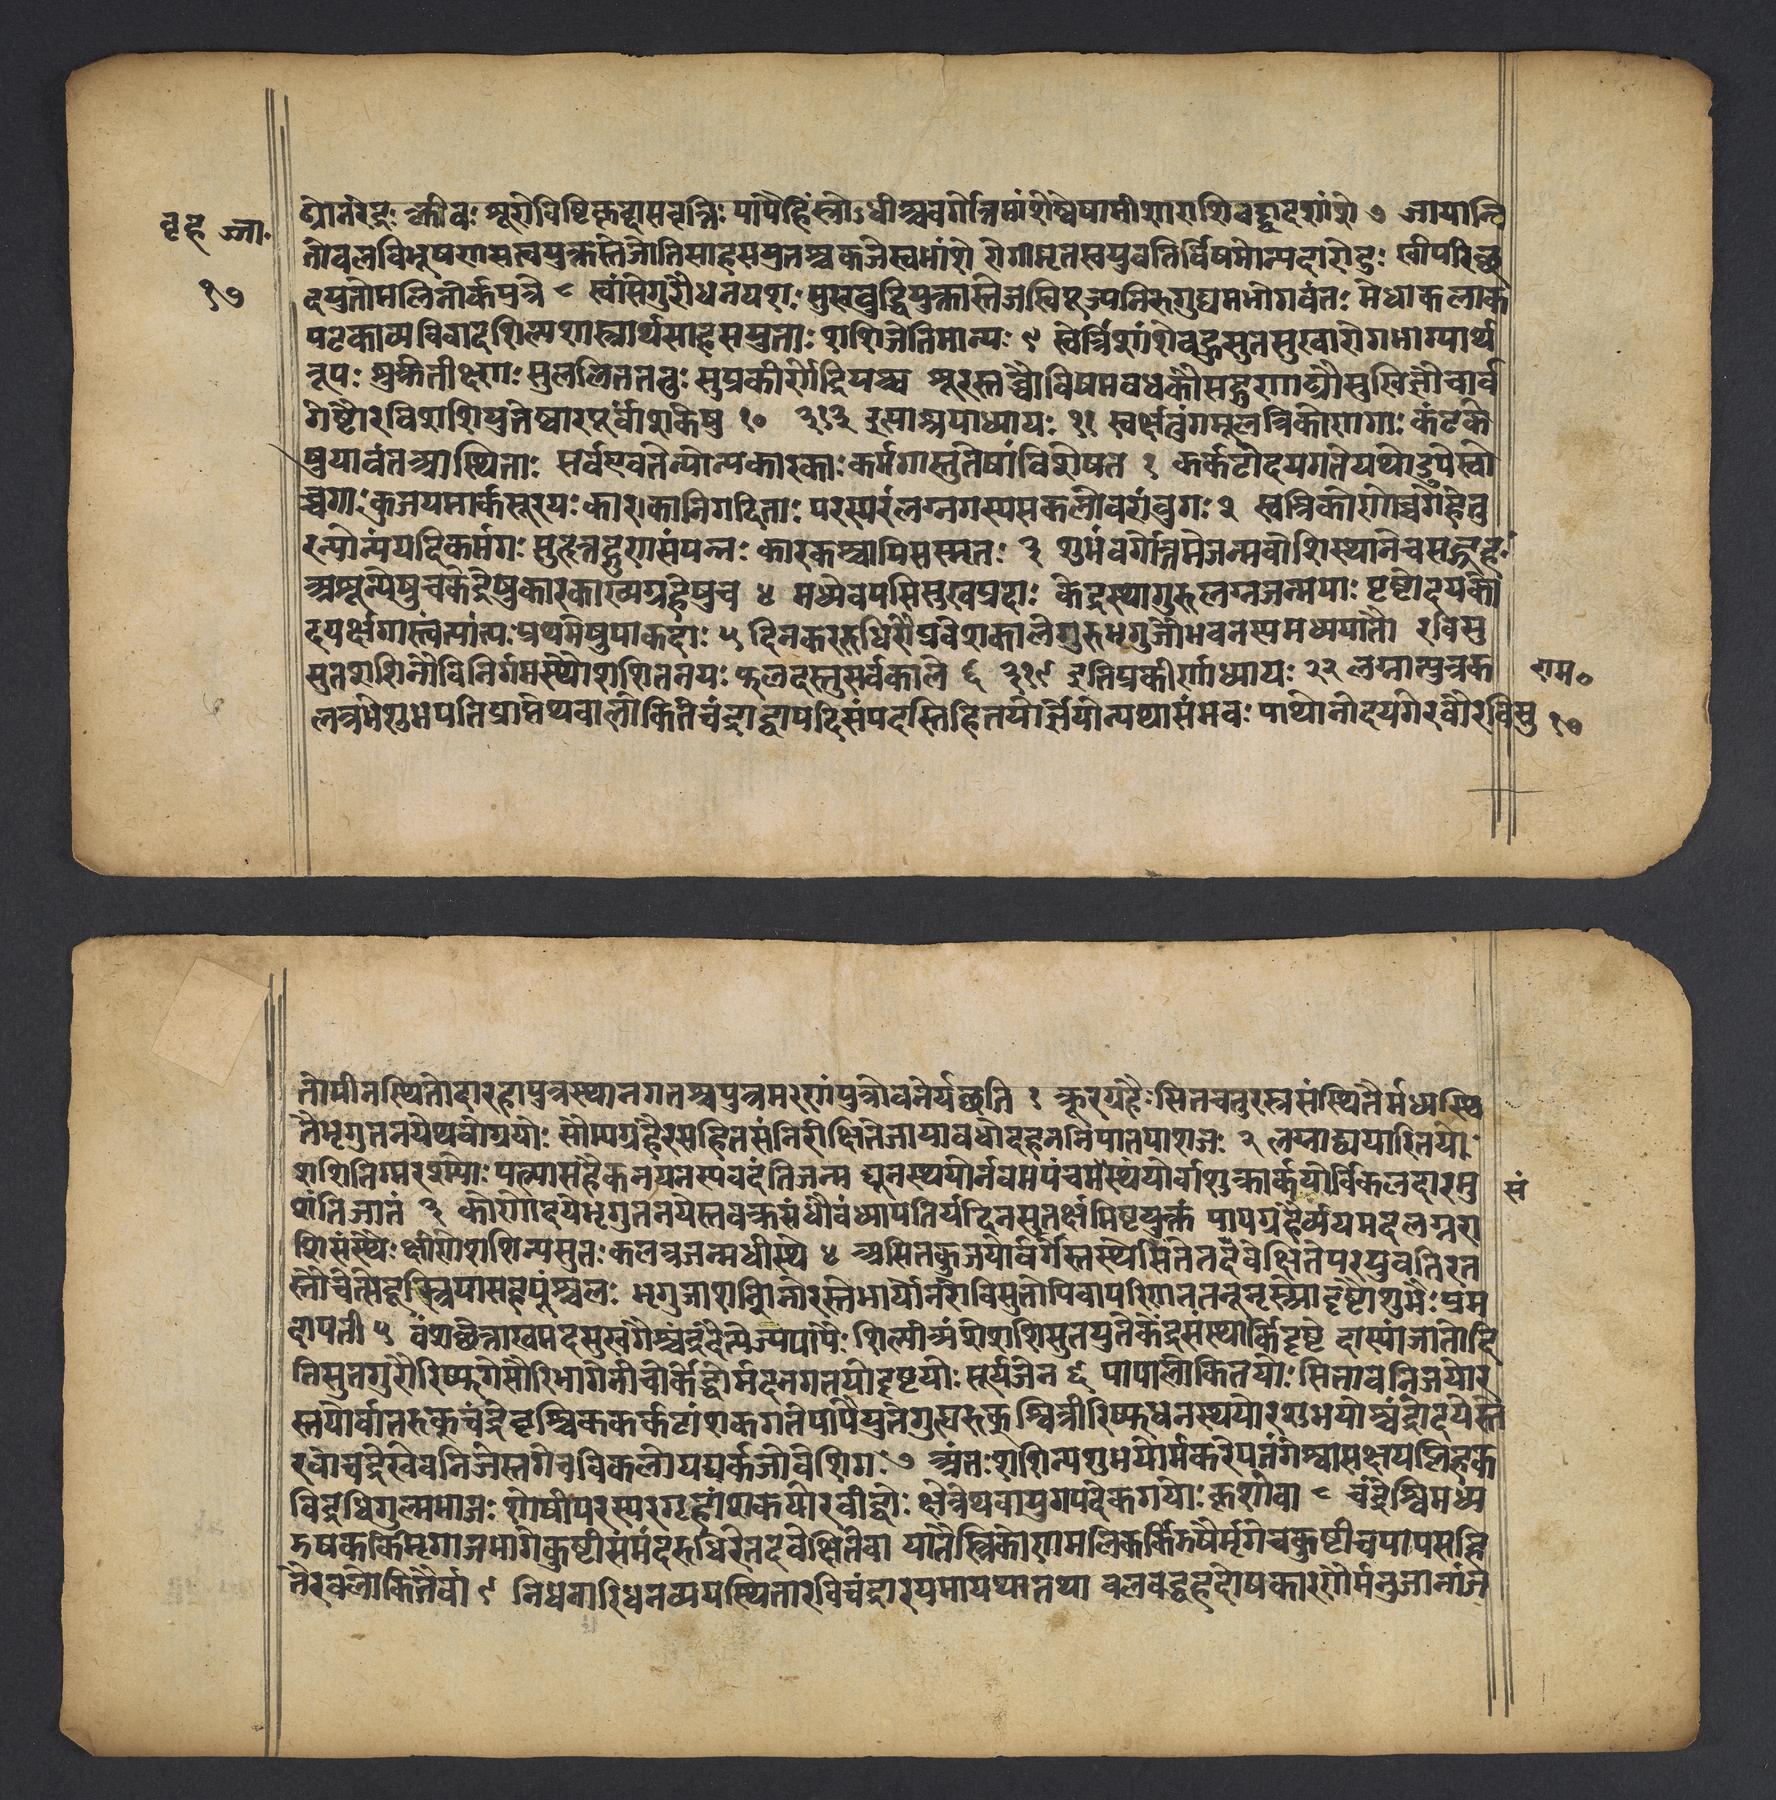 बृह ज्जा.
१७
द्यातनरेंद्र: क्लीब: शूरोविष्टिकृद्दासवृत्ति: पापैहिंस्रोऽधीश्चवर्गोत्तमांशेष्वेषामीशाराशिवद्द्वादशांशे ७ जायान्वि
तोबलविभूषणसत्वयुक्तस्तेजोतिसाहसयुतश्चकुजेस्वभांशे रोगीमृतस्वयुवतिर्विषमोन्यदारोदु: खीपरिच्छ
दयुतोमलिनोर्कपुत्रे ८ स्वांसेगुरौधनयश: सुखबुद्धियुक्तास्तेजस्विपूज्यनिरुगुद्यमभोगवंत: मेधाकलाक
पटकाव्यविवादशिल्पशास्त्रार्थसाहसयुता: शशिजेतिमान्य: ९ स्वेत्रिंशांशेबहुसुतसुखारोगभाग्यार्थ
रूप: शुक्रेतीक्ष्ण: सुललिततनु: सुप्रकीर्णेंद्रियश्च शूरस्तब्धौविषमवधकौसद्गुणाढ्यौसुखिज्ञौचार्व
गेष्टौरविशशियुतेष्वारपूर्वांशकेषु १० ३१३ इत्याश्रयाध्याय: २१ स्वर्क्षतुंगमूलत्रिकोणगा: कंटके
षुयावंतआस्थिता: सर्वएवतेन्योन्यकारका: कर्मगास्तुतेषांविशेषत १ कर्कटोदयगतेयथोडुपेस्वो
च्चगा: कुजयमार्कसूरय: कारकानिगदिता: परस्परंलग्नगस्यसकलोबरांबुग: २ स्वत्रिकोणोच्चगोहेतु
रन्योन्यंयदिकर्मग: सुहृत्तद्गुणसंपन्न: कारकश्चापिसस्मृत: ३ शुभंवर्गोत्तमेजन्मवेशिस्थानेचसद्ग्रहे
अशून्येषुचकेंद्रेषुकारकाख्यग्रहेषुच ४ मध्येवयसिसुखप्रदा: केंद्रस्थागुरुलग्नजन्मपा: पृष्टोदयको
दयर्क्षगास्त्वंत्यांत्य: प्रथमेषुपाकदा: ५ दिनकररुधिरौप्रवेशकालेगुरुभृगुजौभवनस्यमध्ययातौ रविसु
सुतशशिनौविनिर्गमस्थौशशितनय: फलदस्तुसर्वकाले ६ ३१९ इतिप्रकीर्णाध्याय: २२ लग्नात्पुत्रक
लत्रभेशुभपतिप्राप्तेथवालोकितेचंद्राद्वायदिसंपदस्तिहितयोर्ज्ञेयोन्यथासंभव: पाथोनोदयगेरवौरविसु
राम०
१७
तोमीनस्थितोदारहापुत्रस्थानगतश्चपुत्रमरणंपुत्रोवनेर्यच्छति १ क्रूरग्रहै: सितचतुरस्रसंस्थितैर्मध्यस्थि
तेभृगुतनयेथवोग्रयो: सौम्यग्रहैरसहितसंनिरीक्षितेजायावधोदहननिपातपाशज: २ लग्नाद्व्ययारिगतयो:
शशितिग्मरश्म्यो: पत्न्यासहैकनयनस्यवदंतिजन्म द्यूनस्थयोर्नवमपंचमस्थयोर्वाशुक्रार्कयोर्विकलदारमु
सं
शंतिजातं ३ कोणोदयेभृगुतनयेस्तचक्रसंधौवंध्यापतिर्यदिनसुतर्क्षमिष्टयुक्तं पापग्रहैर्व्ययमदलग्नरा
शिसंस्थै: क्षीणेशशिन्यसुत: कलत्रजन्मधीस्थे ४ असितकुजयोर्वर्गेस्तस्थेसितेतदवेक्षितेपरयुवतिरत
स्तौचेत्सेंदूस्त्रियासहपुंश्चल: भृगुजशशिनोरस्तेभार्यानरोविसुतोपिवापरिणततनूनृस्त्र्योर्दृष्टौशुभै: प्रम
दापती ५ वंशछेत्ताखमदसुखगैश्चंद्रदैत्येज्यपापै: शिल्पीत्र्यंशेशशिसुतयुतेकेंद्रसंस्थार्किदृष्टे दास्यांजातोदि
तिसुतगुरौरिष्फगेसौरिभागेनीचोर्केंद्वोर्मदनगतयोर्दृष्टयो: सूर्यजेन ६ पापालोकितयो: सितावनिजयोर
स्तयोर्वातरुक्चंद्रेवृश्चिककर्कटांशकगतेपापैर्युतेगुह्यरुक् श्वित्रीरिष्फधनस्थयोरशुभयोश्चंद्रोदयेस्ते
रवौचंद्रेखेवनिजेस्तगेचविकलोयद्यर्कजोवेशिग: ७ अंत: शशिन्यशुभयोर्मकरेपतंगेश्वासक्षयप्लिहक
विद्रधिगुल्मभाज: शोषीपरस्परगृहांशकयोरवींद्वो: क्षेत्रेथवायुगपदेकगयो: कृशोवा ८ चंद्रेश्विमध्य
झषकर्किमृगाजभागेकुष्टीसमंदरुधिरेतदवेक्षितेवा यातैस्त्रिकोणमलिकर्किवृषैर्मृगेचकुष्टीचपापसहि
तैरवलोकितैर्वा ९ निधनारिधनव्ययस्थितारविचंद्रारयमायथातथा बलवद्ग्रहदोषकारणैर्मनुजानांज